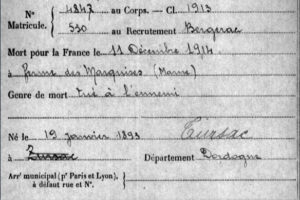 4847 au Corps. — Cl. 1913
N°
Matricule. 530 au Recrutement Bergerac
Mort pour la France le 11 Décembre 1914
à Ferme des Marquises (Marne)
Genre de mort tué à l'ennemi
Né le 19 janvier 1893 Tursac
à Zursac Département Dordogne
Arr' municipal (p' Paris et Lyon),
à défaut rue et N°.